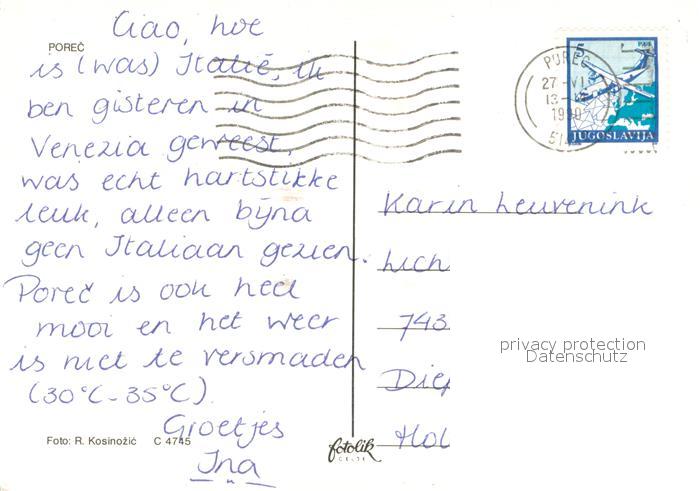 POREČ
Ciao, hoe
is (was) Italië, ik
ben gisteren in
Venezia geweest,
was echt hartstikke
leuk, alleen bijna
geen Italiaan gezien.
Poreč is ook heel
mooi en het weer
is niet te versmaden
(30°C - 35°C).
Groetjes
Ina
Foto: R. Kosinožić C 4745
fotolik
CELJE
POREČ
27 -VI
13-
1990
JUGOSLAVIJA
Karin Leuvenink
Lich
743
Diep
Hol
privacy protection
Datenschutz